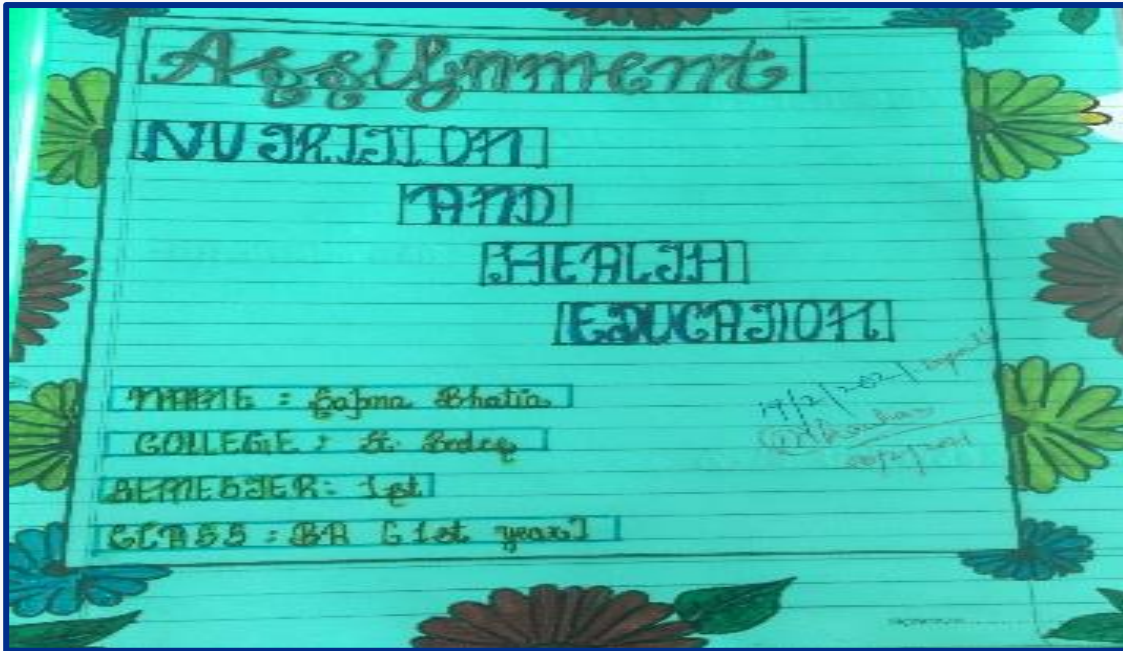 Assignment
NUTRITION
AND
HEALTH
EDUCATION
NAME : Sapna Bhatia
COLLEGE : St. Bedes
SEMESTER : 1st
CLASS : BA [1st year]
19/2/2021